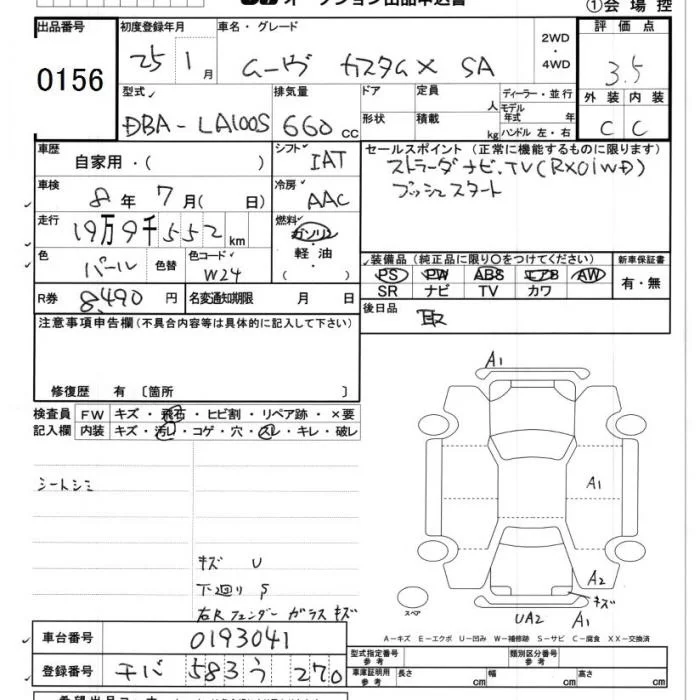 オークション出品申込書
①会場控
出品番号 0156
初度登録年月 25 1月
車名・グレード ムーヴ カスタムX SA
2WD・4WD
評価点 3.5
外装 内装
C C
型式 DBA-LA100S
排気量 660 cc
ドア 形状
定員 人 積載 kg
ディーラー・並行
モデル年式 年
ハンドル 左・右
車歴 自家用・( )
シフト IAT
セールスポイント (正常に機能するものに限ります)
ストラーダナビ.TV(RX01WD)
プッシュスタート
車検 8年 7月( 日)
冷房 AAC
走行 19万9千552km
燃料 ガソリン・軽油・( )
色 パール 色替 色コード W24
装備品 (純正品に限り○をつけてください)
PS PW ABS エアB AW
SR ナビ TV カワ
新車保証書 有・無
R券 8,490円
名変通知期限 月 日
後日品 取
注意事項申告欄 (不具合内容等は具体的に記入して下さい)
修復歴 有〔箇所 〕
検査員記入欄
FW キズ・飛石・ヒビ割・リペア跡・×要
内装 キズ・汚レ・コゲ・穴・スレ・キレ・破レ
シートシミ
キズ U
下廻り S
右Rフェンダー ガラスキズ
A1
A1
A2
キズ
UA2
A1
スペア
A-キズ E-エクボ U-凹み W-補修跡 S-サビ C-腐食 XX-交換済
車台番号 0193041
登録番号 583 う 270
型式指定番号 参考
類別区分番号 参考
車庫証明用 参考 長さ cm 幅 cm 高さ cm